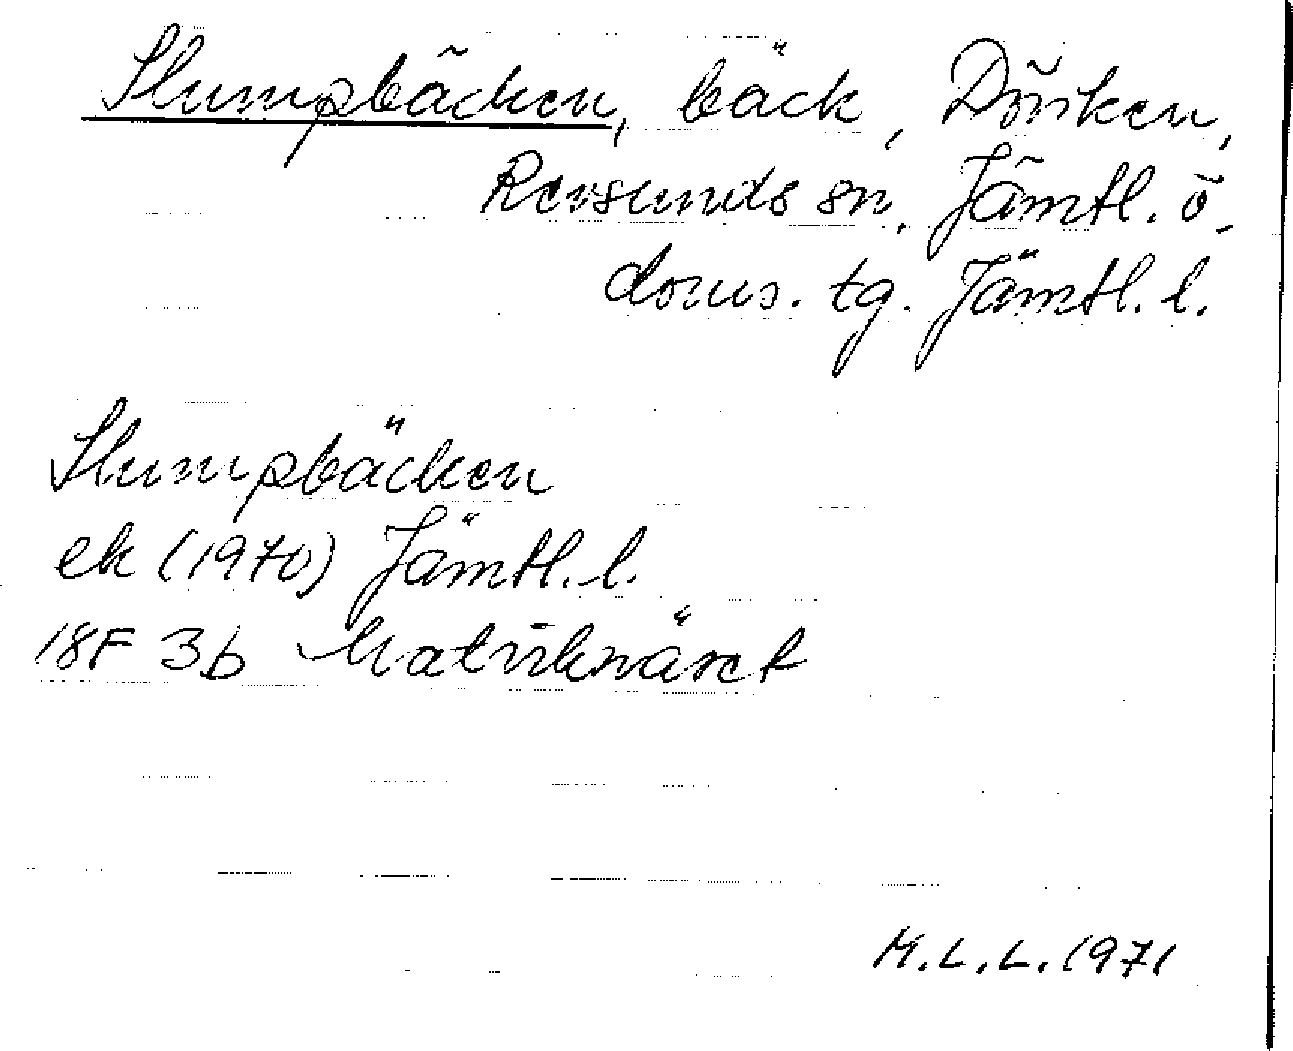 Slumpbäcken, bäck, Döviken,
Revsunds sn, Jämtl. ö.
doms. tg. Jämtl. l.
Slumpbäcken
ek (1970) Jämtl. l.
18F 3b
M.L.L. 1971